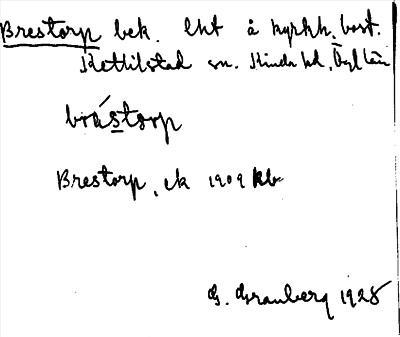 Brestorp bek. lht å kyrkh. bost.
Kettilstad sn. Kinda hd, Ögl län
bråstorp
Brestorp, ek 1909 kb
G. Granberg 1928